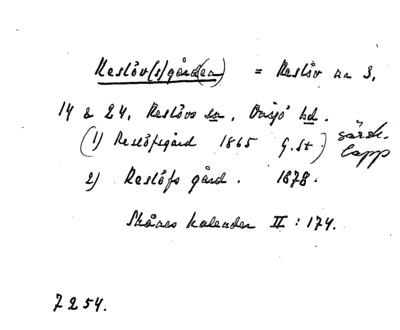 Reslöv(s)gård(en) = Reslöv nr 3,
14 & 24, Reslövs sn, Onsjö hd.
(1) Reslöfsgård 1865 G.St) särsk. lapp
2) Reslöfs gård. 1878.
Skånes Kalender II : 174.
7254.